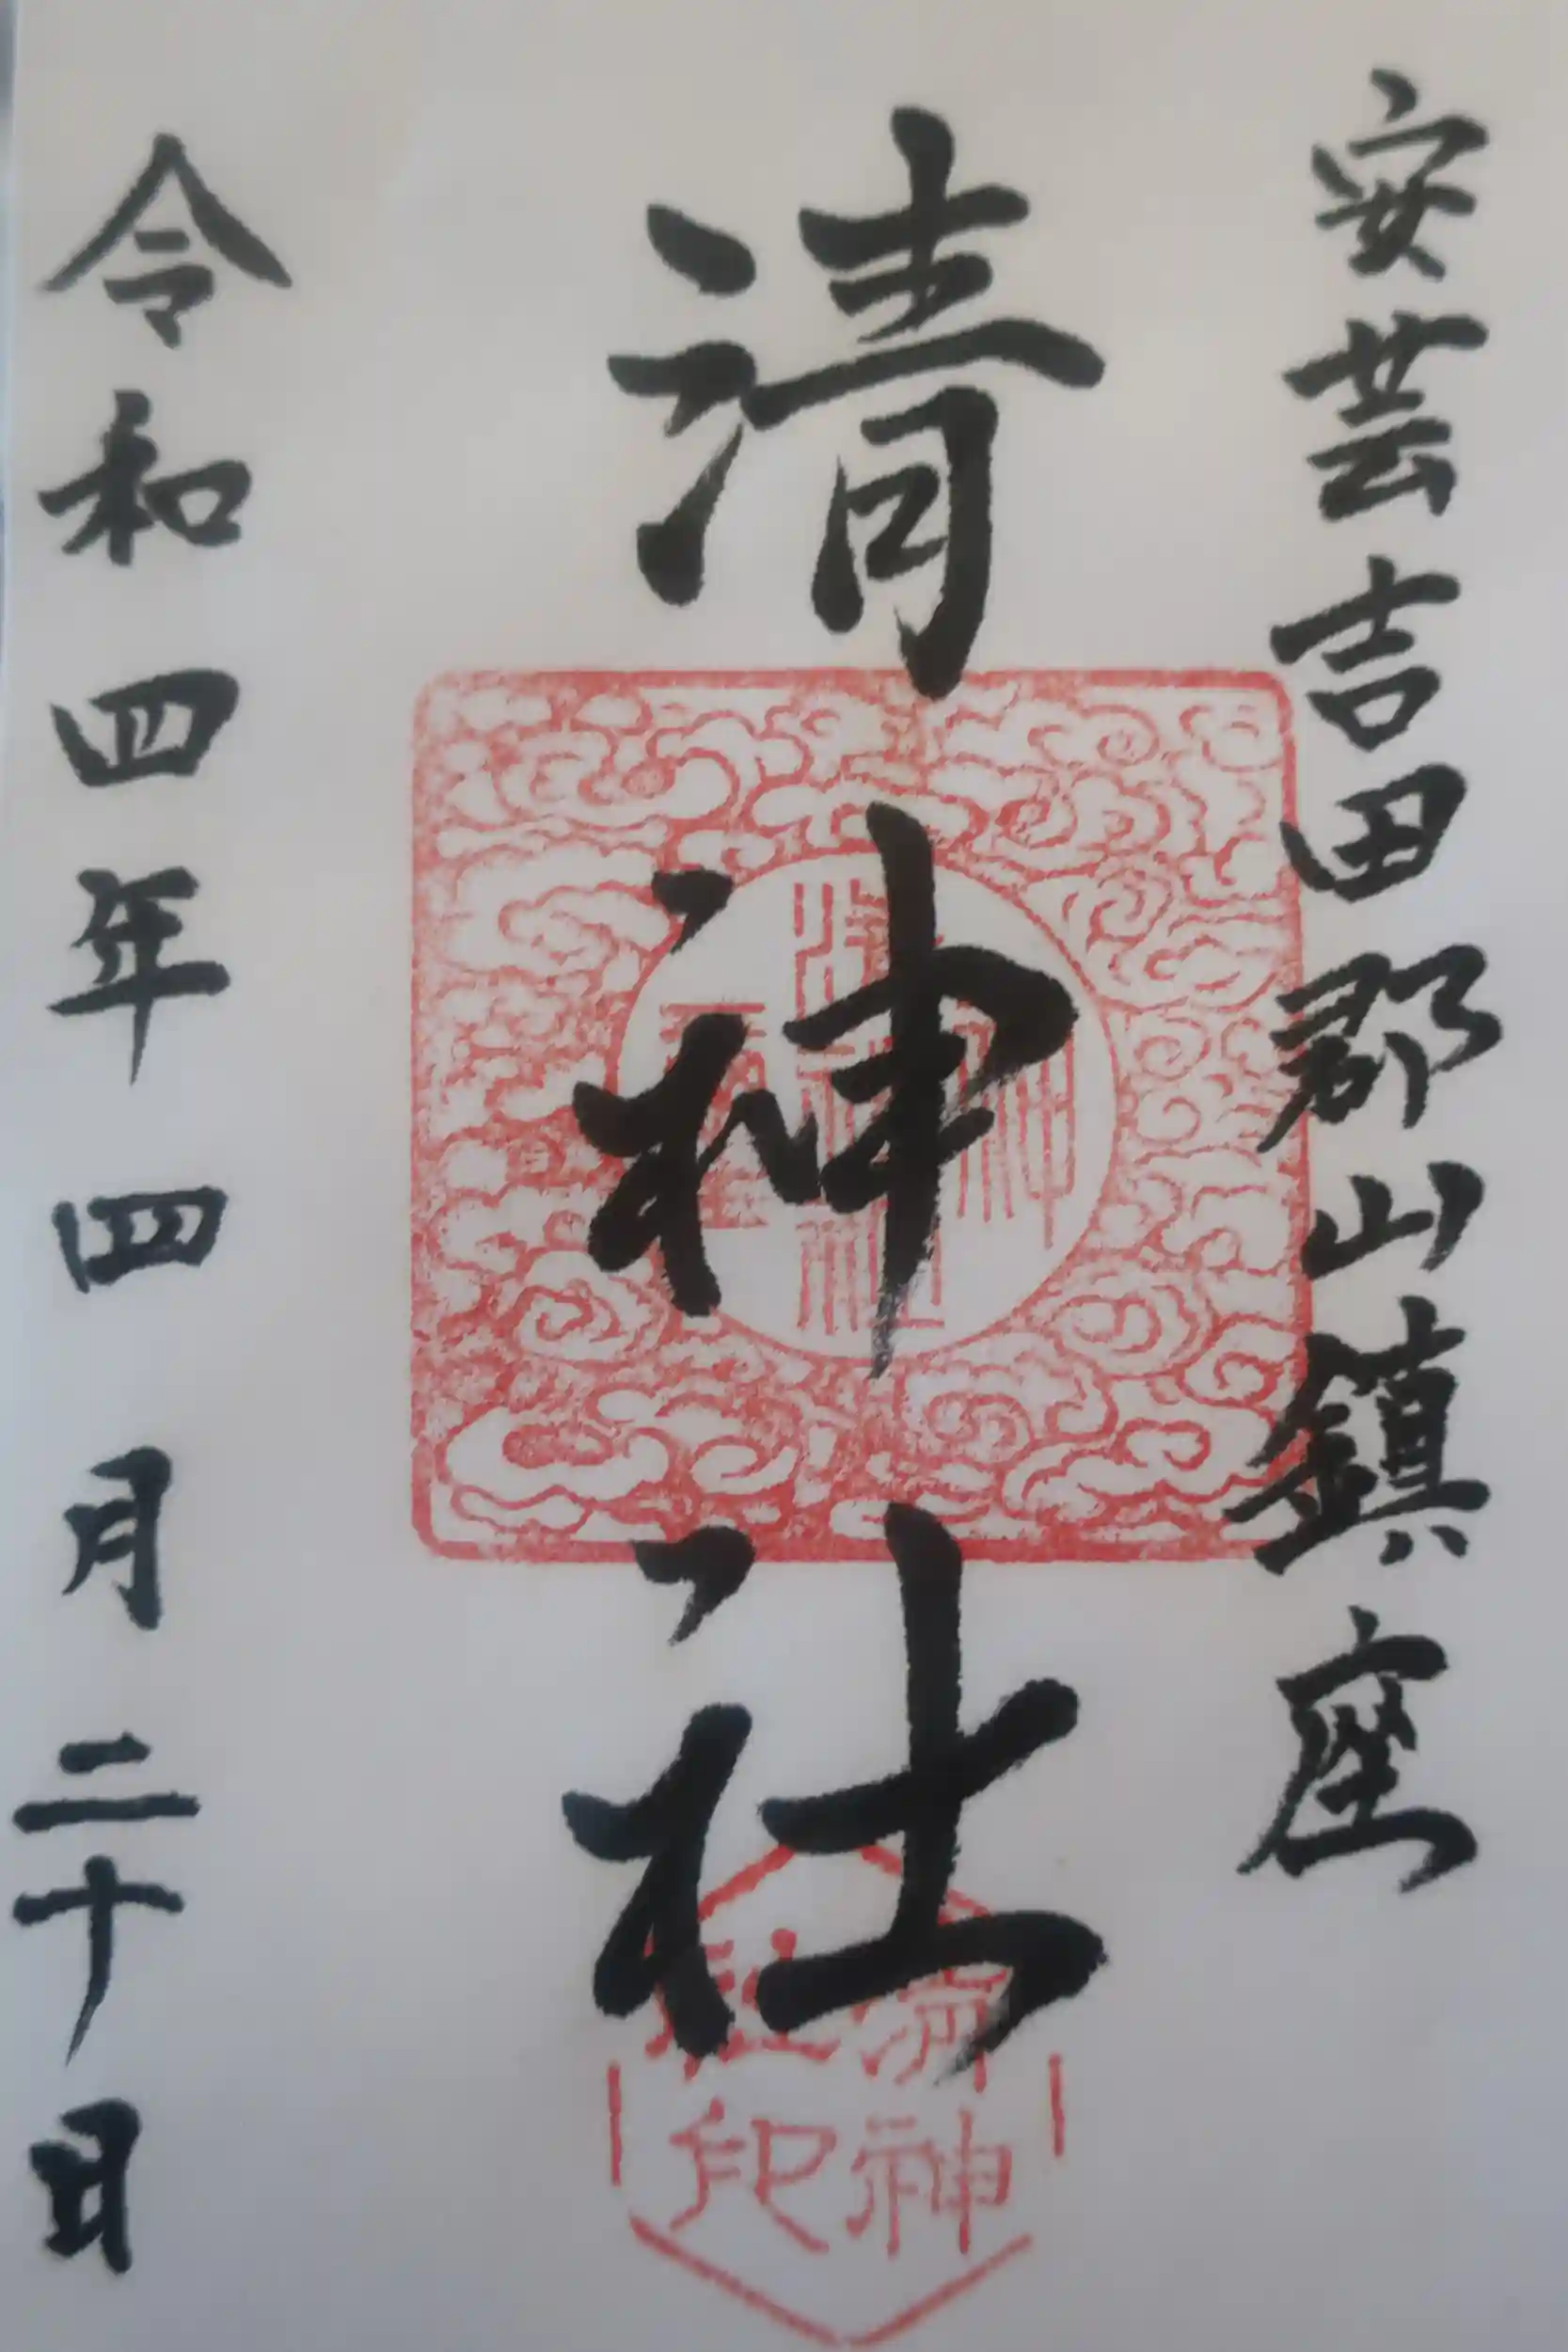 安芸吉田郡山鎮座
清神社
令和四年四月二十日
清神社印